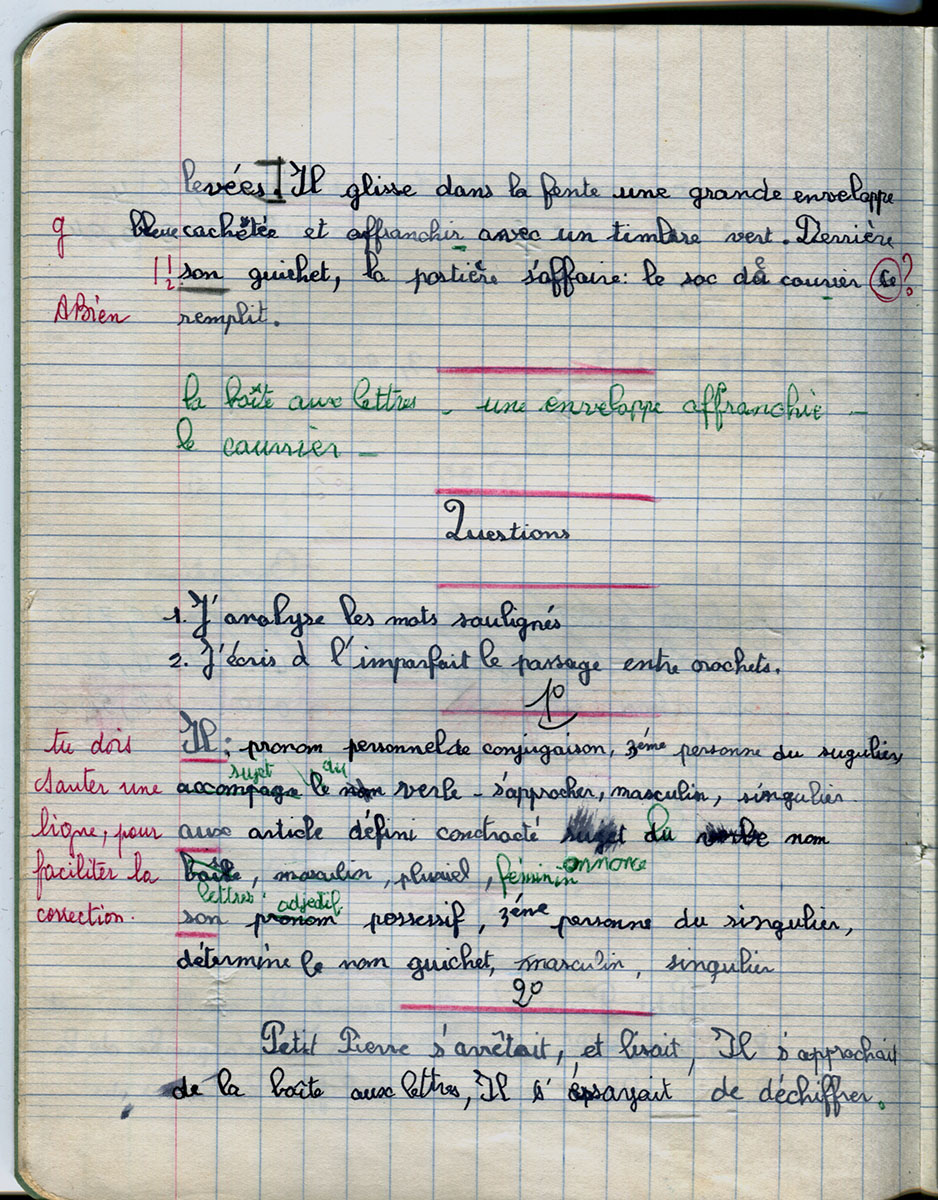 levées.] Il glisse dans la fente une grande enveloppe
g bleue cachetée et affranchir avec un timbre vert. Derrière
!! son guichet, la postière s'affaire: le sac de courrier ce ?
A Bien remplit.
la boîte aux lettres - une enveloppe affranchie -
le courrier -
Questions
1. J'analyse les mots soulignés
2. J'écris à l'imparfait le passage entre crochets.
1º
tu dois Il: pronom personnel de conjugaison, 3ème personne du sugulier,
sujet du
sauter une accompagne le nom verbe - s'approcher, masculin, singulier
ligne, pour aux article défini conctracté sujet du verbe nom
faciliter la boîte, masculin, pluriel, féminin annonce
lettres adjectif
correction. son pronom possessif, 3éme personne du singulier,
détermine le nom guichet, masculin, singulier
2º
Petit Pierre s'arrêtait, et lisait, Il s'approchait
de la boîte aux lettres, Il s'éssayait de déchiffrer.